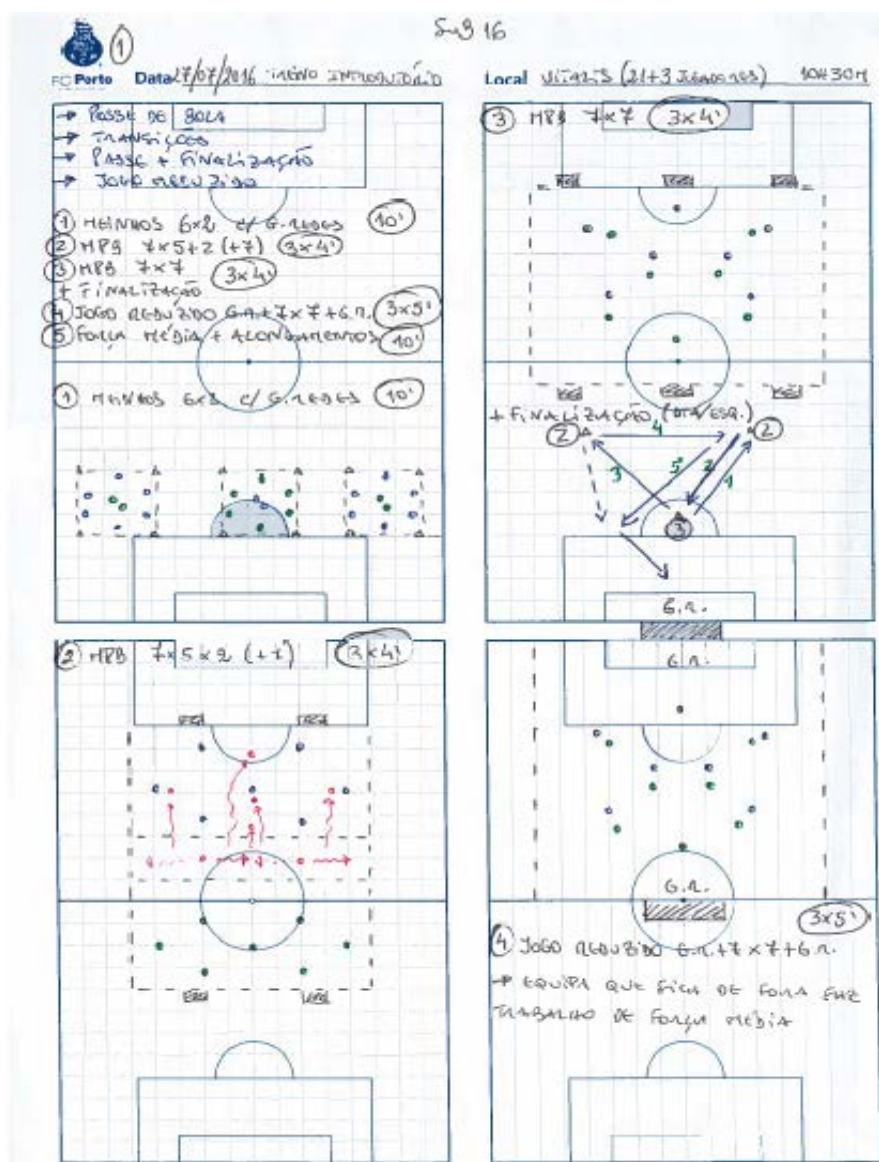 Sub 16
1
FC Porto Data 27/07/2016 TREINO INTRODUTÓRIO
Local VITALIS (21+3 JOGADORES) 10H30M
→ POSSE DE BOLA
→ TRANSIÇÕES
→ PASSE + FINALIZAÇÃO
→ JOGO REDUZIDO
1 MEINHOS 6x2 c/ G.REDES 10'
2 MPB 7x5+2 (+7) 3x4'
3 MPB 7x7 3x4'
+ FINALIZAÇÃO
4 JOGO REDUZIDO G.R.+7x7+G.R. 3x5'
5 FORÇA MÉDIA + ALONGAMENTOS 10'
1 MEINHOS 6x2 c/ G.REDES 10'
3 MPB 7x7 3x4'
+ FINALIZAÇÃO (DTA/ESQ.)
2 4 2
3 5 2 1
3
G.R.
2 MPB 7x5x2 (+7) 3x4'
G.R.
G.R.
3x5'
4 JOGO REDUZIDO G.R.+7x7+G.R.
→ EQUIPA QUE FICA DE FORA FAZ
TRABALHO DE FORÇA MÉDIA